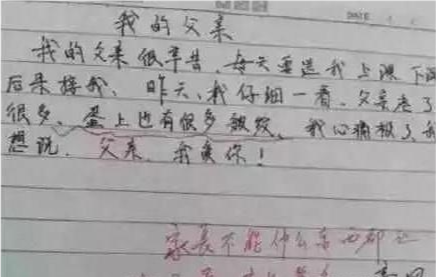 我的父亲
我的父亲很辛苦,每天要送我上课下课
后来接我、昨天、我仔细一看、父亲老了
很多、蛋上也有很多皱纹、我心痛极了、我
想说、父亲、我爱你!
家长不能什么东西都